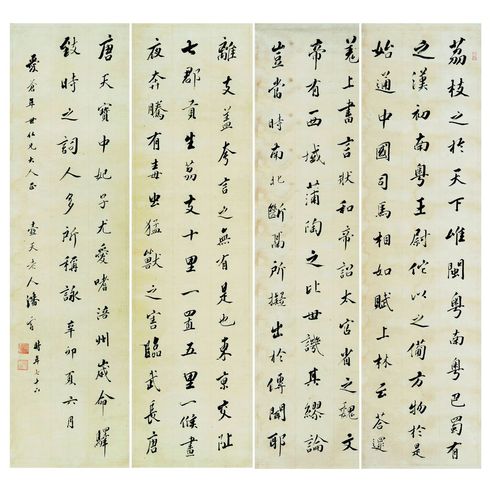 荔枝之於天下唯閩粵南粵巴蜀有
之漢初南粵王尉佗以之備方物於是
始通中國司馬相如賦上林云荅遝
羌上書言狀和帝詔太官省之魏文
帝有西域蒲陶之比世譏其繆論
豈當時南北斷鬲所擬出於傳聞耶
離支蓋夸言之無有是也東京交阯
七郡貢生荔支十里一置五里一候晝
夜奔騰有毒虫猛獸之害臨武長唐
唐天寶中妃子尤愛嗜涪州歲命驛
致時之詞人多所稱詠辛卯夏六月
愛蒼年世仁兄大人正 壺天老人潘霨 時年七十六